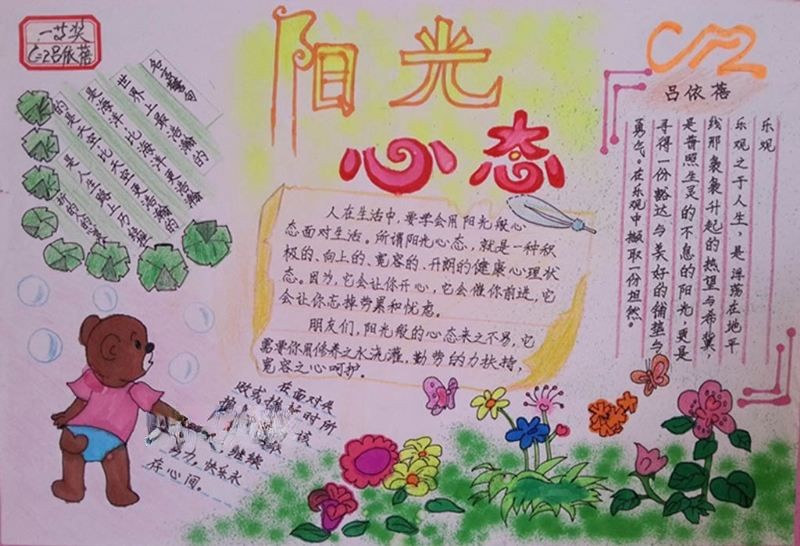 一等奖
吕依蓓
阳光
心态
名言警句
世界上最浩瀚的
是海洋比海洋更浩瀚
的是天空比天空更浩瀚的
是人生路上
人在生活中，要学会用阳光般心
态面对生活。所谓阳光心态，就是一种积
极的、向上的、宽容的、开朗的健康心理状
态。因为，它会让你开心，它会催你前进，它
会让你忘掉劳累和忧虑。
朋友们，阳光般的心态来之不易，它
需要你用修养之水浇灌，勤劳的力扶持，
宽容之心呵护。
吕依蓓
乐观
乐观之于人生，是浮荡在地平
线那袅袅升起的热望与希冀，
是普照生灵的不息的阳光，更是
寻得一份豁达与美好的铺垫与
勇气。在乐观中撷取一份坦然。
在面对是
做或择好时所
该
继续
努力。快乐永
存心间。